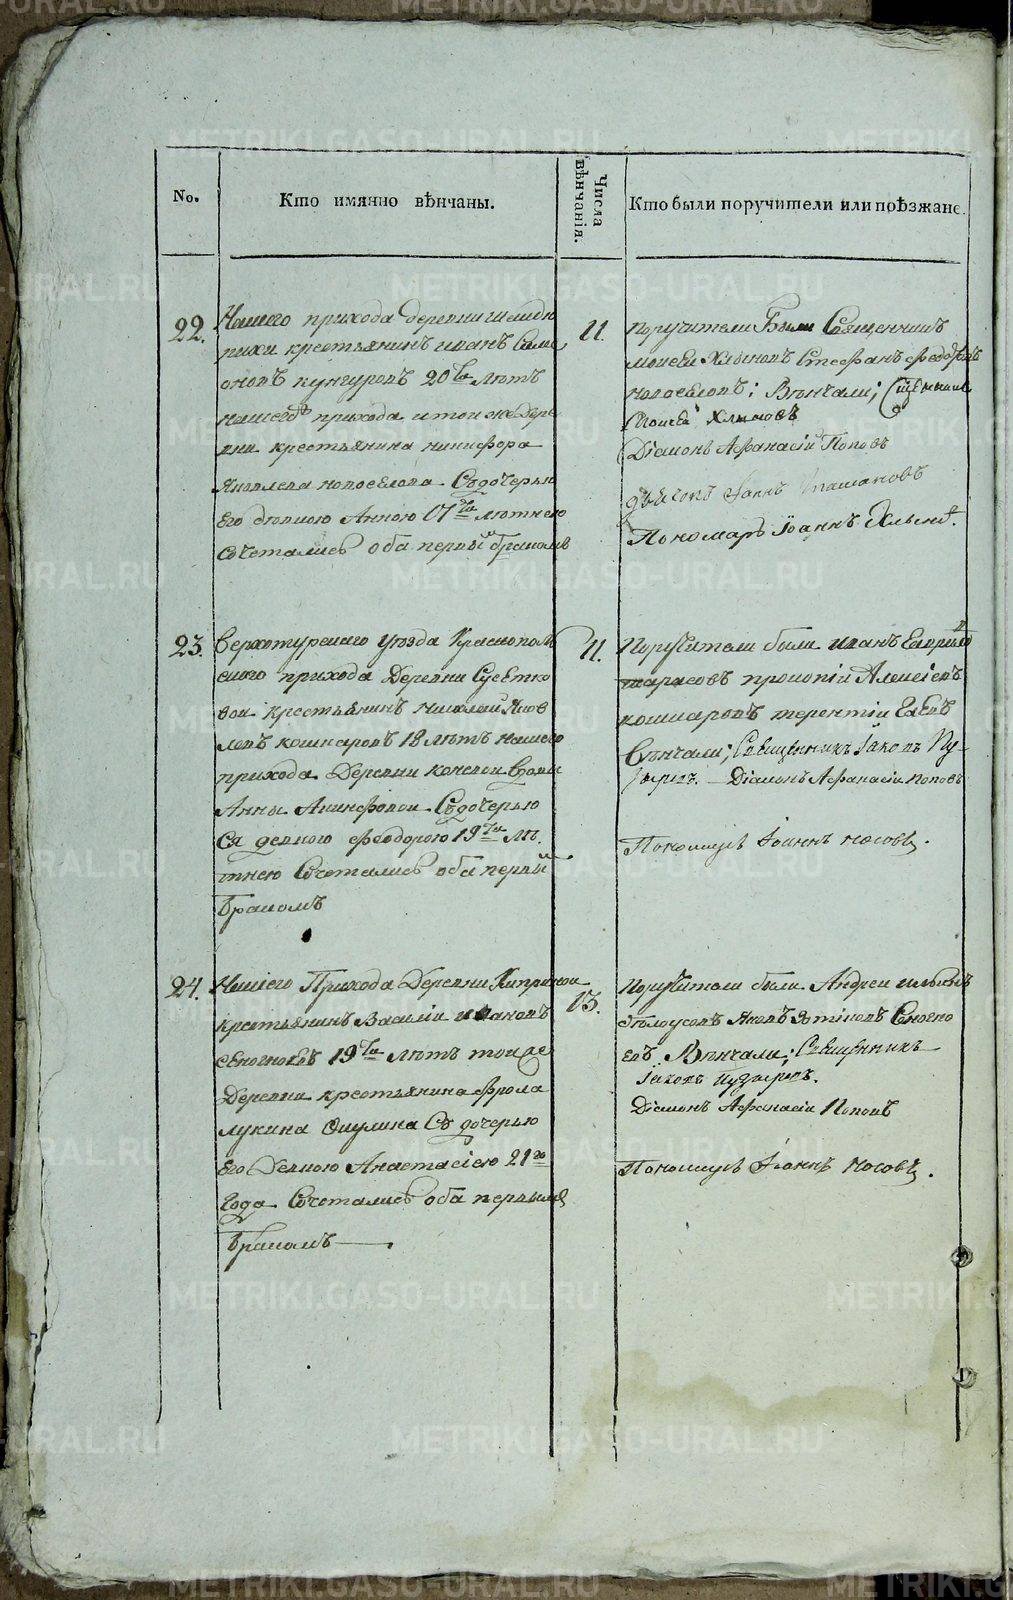 No.
Кто имянно вѣнчаны.
Числа
вѣнчанія.
Кто были поручители или поѣзжане.
22.
Нашего прихода деревни
крестьянинъ иванъ
оновъ кунгуровъ 20 лѣтъ
нашего прихода и тои же дере
вни крестьянина никифора
Яковлева новоселова Съ дочерью
его дѣвкою Анною 17 лѣтнею
Сочетались оба первы бракомъ
11.
поручители были Священникъ
моисеи Хлыновъ Стефанъ Федоровъ
новоселовъ; Вѣнчали;
Моисеи Хлыновъ
Діаконъ Афанасіи Поповъ
Іоаннъ
Пономарь Іоаннъ
23.
Верхотурскаго уѣзда Краснополь
скаго прихода Деревни
вои крестьянинъ николаи Яков
левъ кошкаровъ 18 лѣтъ нашего
прихода Деревни вдовы
Анны Акинфовои Съ дочерью
Ея девкою Феодорою 19 лѣ
тнею Сочетались оба первы
бракомъ
11.
Поручители были иванъ
тарасовъ прокопіи Алексіевъ
кошкаровъ терентіи
Вѣнчали; Священникъ Іаковъ Пу
зыревъ. Діаконъ Афанасіи поповъ
Пономарь Іоаннъ носовъ.
24.
Нашего Прихода Деревни
крестьянинъ Василіи ивановъ
19 лѣтъ тои же
Деревни крестьянина Фрола
лукина Окулина Съ дочерью
его Девкою Анастасіею 21го
года Сочетались оба первымъ
бракомъ
13.
Поручители были Андреи
белоусовъ Яковъ
Вѣнчали; Священникъ
Іаковъ Пузыревъ.
Діаконъ Афанасіи Поповъ
Пономарь Іоаннъ Носовъ.
METRIKI.GASO-URAL.RU